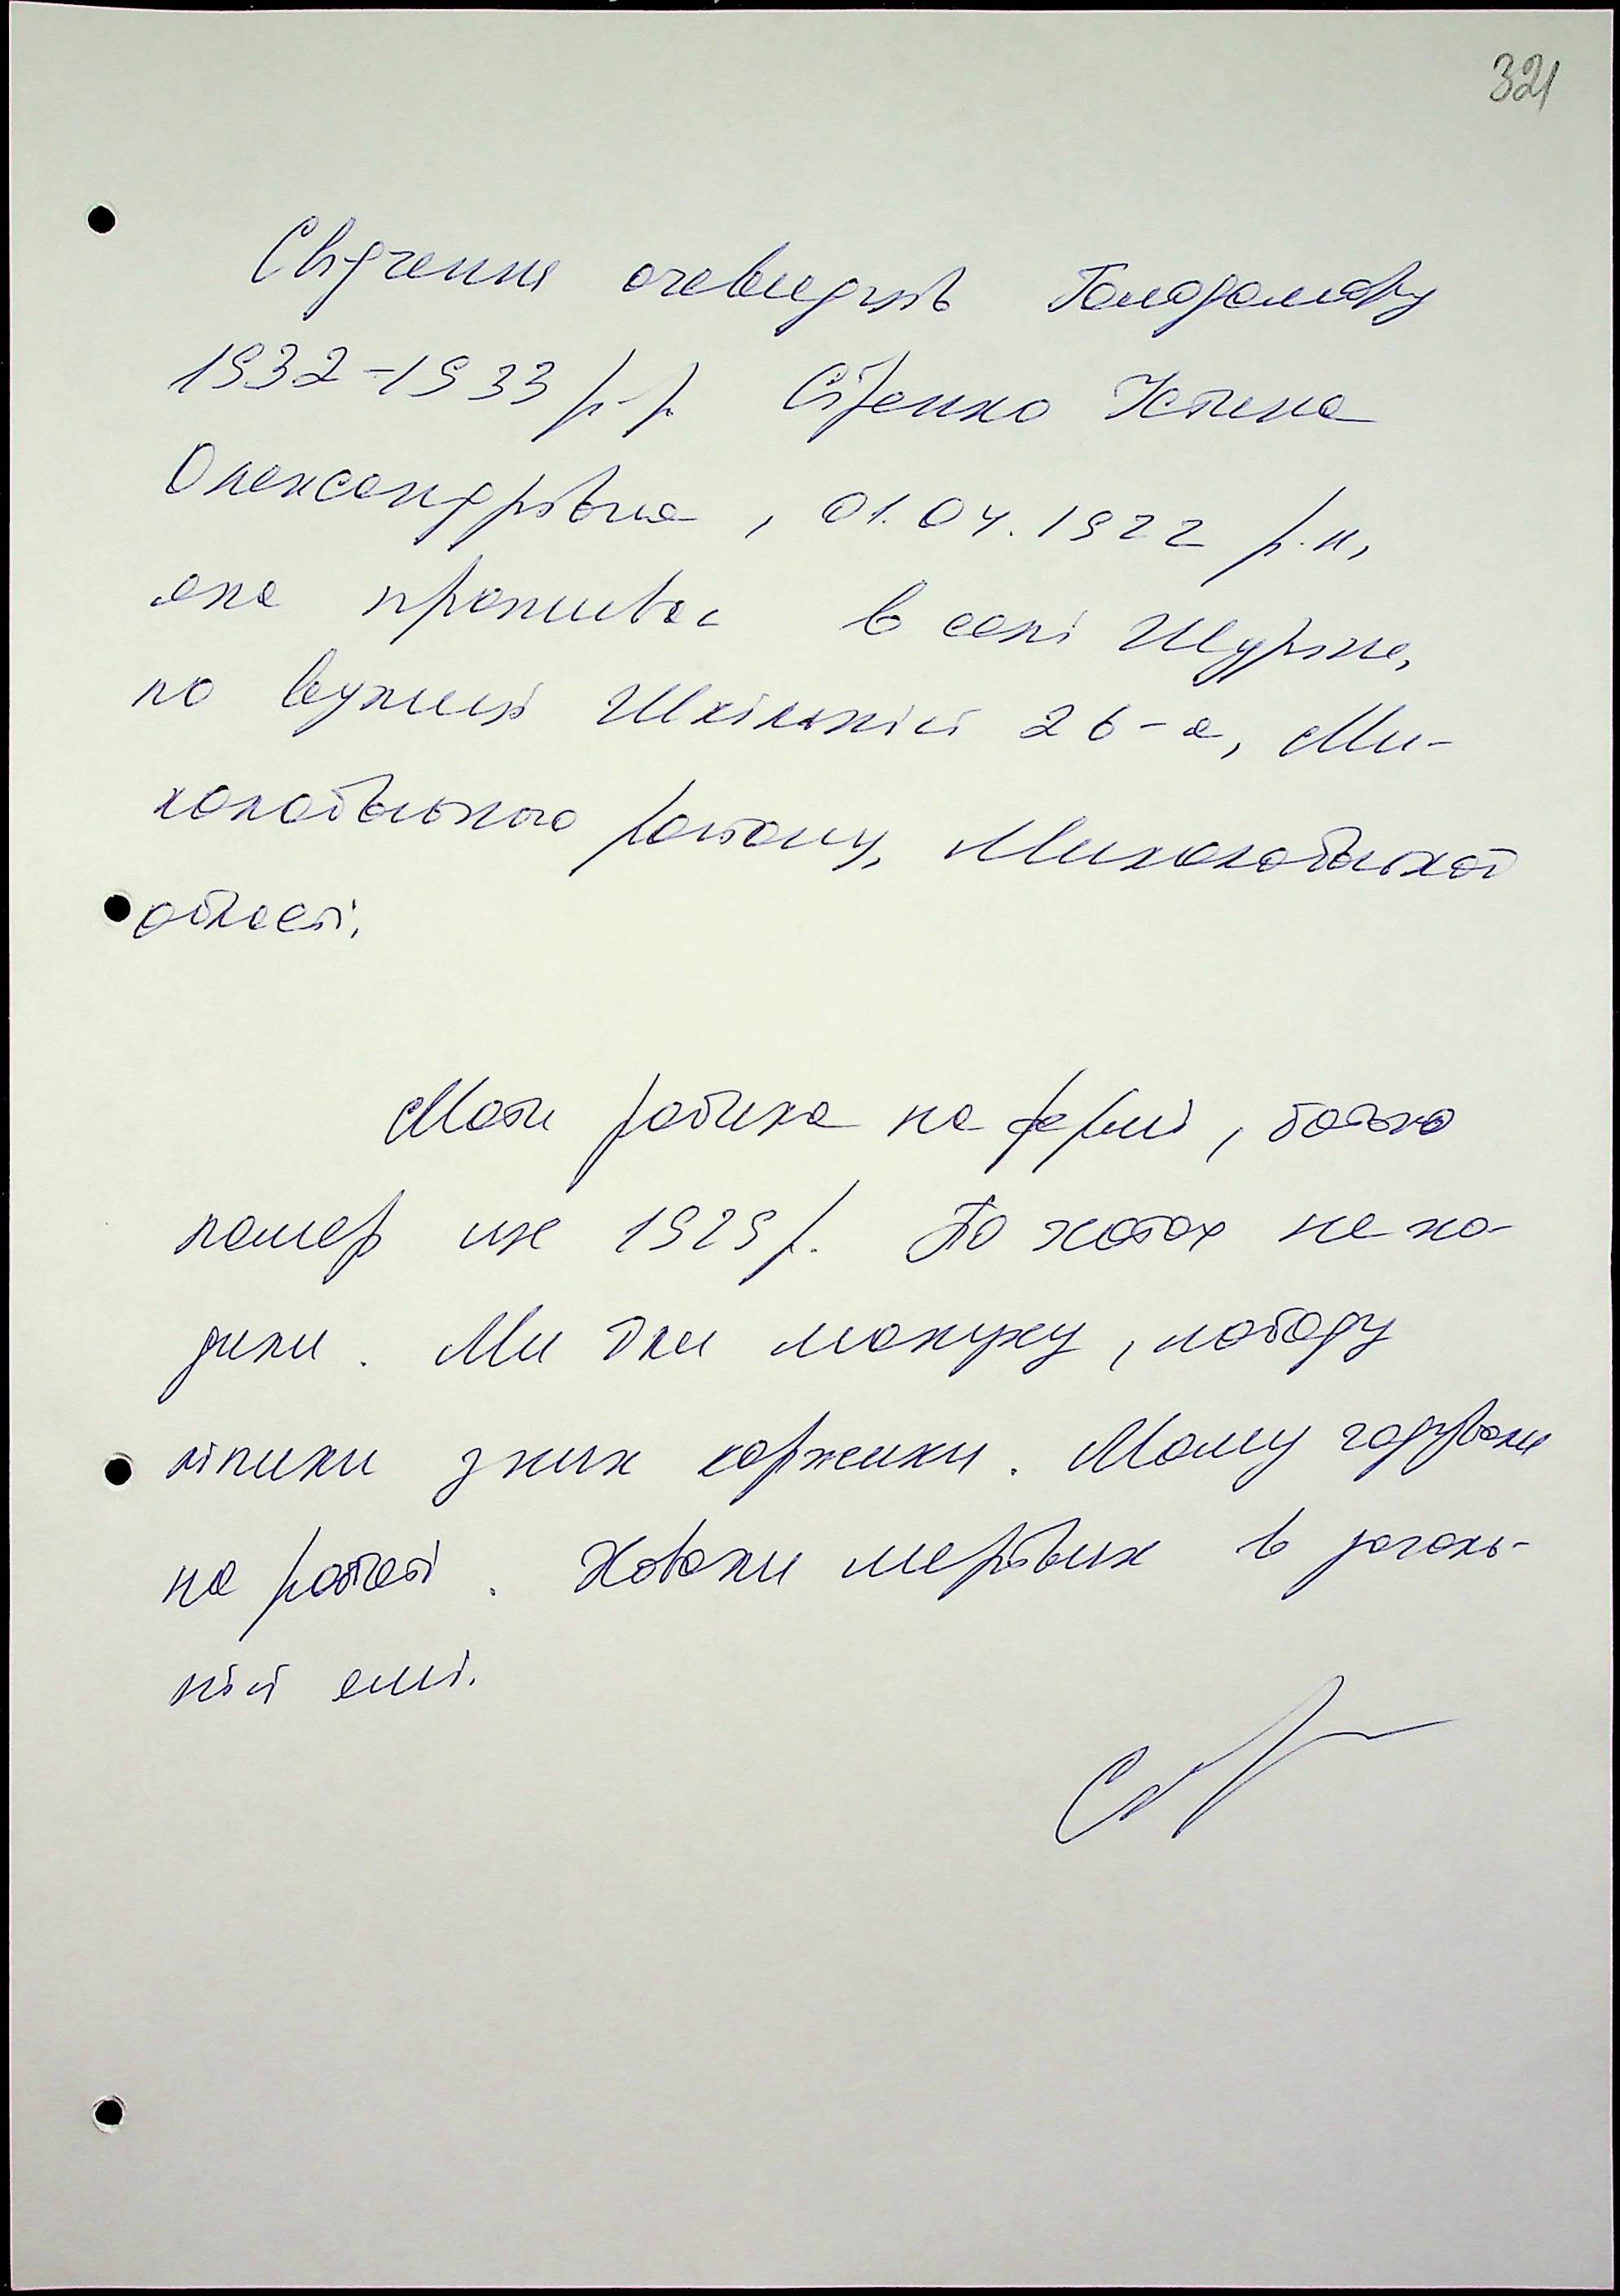 321
Свідчення очевидців Голодомору
1932-1933 р.р. Сізенко Устина
Олександрівна, 01.04.1922 р.н,
яка проживає в селі Шуріне,
по вулиці Шкільній 26-а, Ми-
колаївського району, Миколаївської
області.
Мати робила на фермі, батько
помер ще 1929 р. По хатах не хо-
дили. Ми їли макуху, лободу
ліпили з них коржики. Маму годували
на роботі. Ховали мертвих в загаль-
ній ямі.